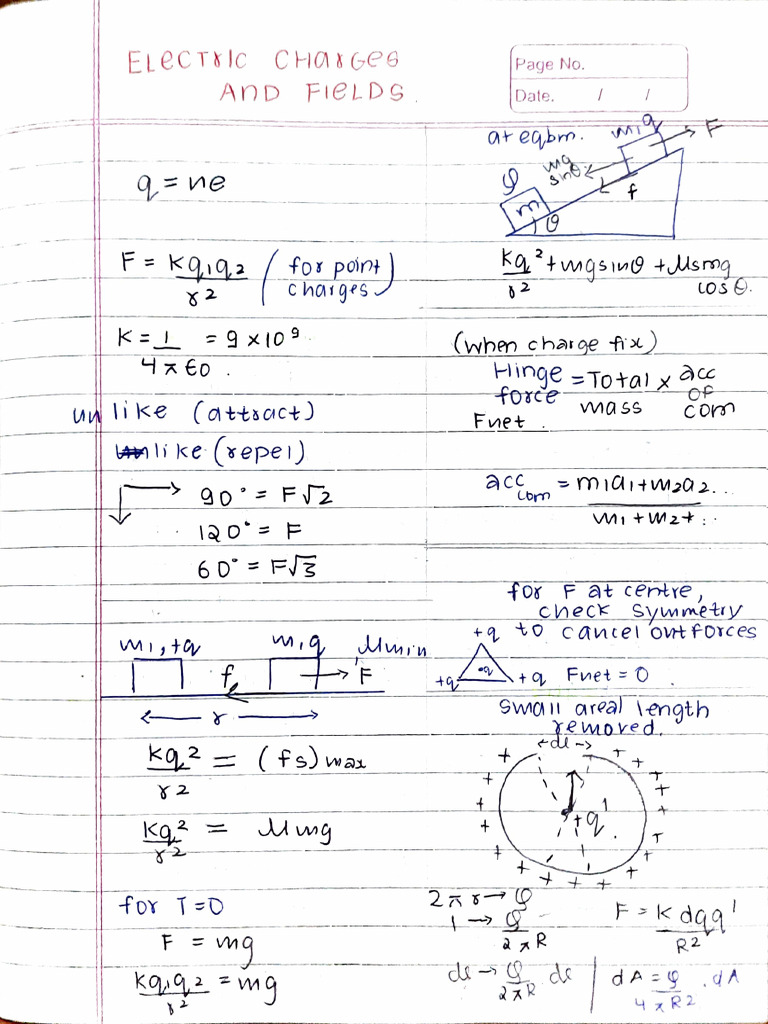 ELECTRIC CHARGES
AND FIELDS.
Page No.
Date. / /
q = ne
F = Kq₁q₂ / r² (for point charges)
K = 1 / 4πε0 = 9 × 10⁹
.
unlike (attract)
like (repel)
90° = F√2
120° = F
60° = F√3
m₁, +q m, q μmin
f F
r
Kq² / r² = (fs) max
Kq² / r² = μmg
for T=0
F = mg
Kq₁q₂ / r² = mg
at eqbm. m, q
F
mg sinθ
f
φ
m
θ
Kq² / r² + mgsinθ + μsmg cosθ.
(when charge fix)
Hinge force = Total mass × acc of com
Fnet.
acc com = m₁a₁+m₂a₂.. / m₁+m₂+..
for F at centre,
check symmetry
to cancel out forces
+q
+q +q +q Fnet = 0.
small areal length
removed.
← dl →
+ + + + + + + + + + + + + + + + + +
+q'
2πr → φ
1 → φ / 2πR
dl → φ / 2πR dl
F = K dqq' / R²
dA = φ / 4πR² . dA